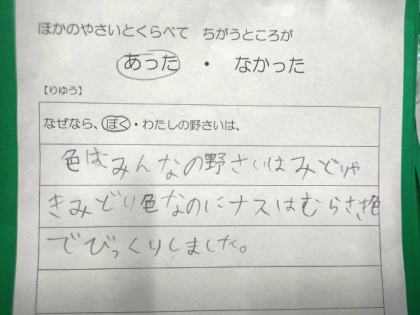 ほかのやさいとくらべて ちがうところが
あった ・ なかった
【りゆう】
なぜなら、ぼく・わたしの野さいは、
色はみんなの野さいはみどりや
きみどり色なのにナスはむらさき色
でびっくりしました。